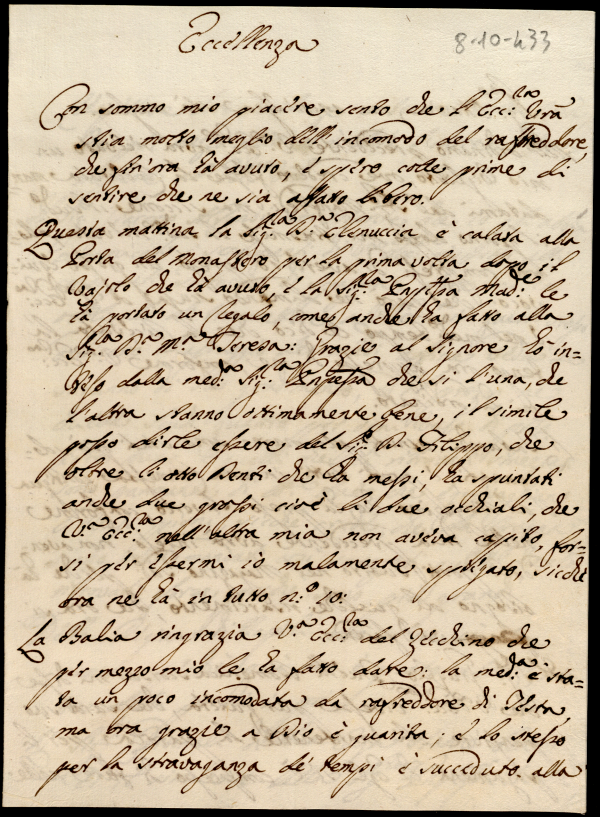 Eccellenza
8-10-433
Con sommo mio piacére sento che l'Ecc:za Vrã
stia molto meglio dell'incomodo del raffreddore,
che fin'ora hà avuto, é spéro colle prime di
sentire che ne sia affatto libero.
Questa mattina la Sig:la D.a Elenuccia è calata alla
Porta del Monastero per la prima volta dopo il
Vajolo che hà avuto, é la Sig:la Cnṫessa Mad:e le
hà portato un regalo, come anche hà fatto alla
Sig:la D.a M.a Teresa: Grazie al Signore hò in=
téso dalla med:a Sig:la Cnṫessa che si l'una, che
l'altra stanno ottimamente bene, il simile
posso dirle essere del Sig:e D. Filippo, che
oltre li otto Denti che hà messi, hà spuntati
anche due grossi cioè li due occhiali, che
V.a Ecc:za nell'altra mia non avéva capito, for=
si pér éssermi io malamente spiegato, sicchè
ora ne hà in tutto n:o 10:
La Balia ringrazia V.a Ecc:za del Zecchino che
pér mezzo mio le hà fatto dare: la med:a é sta=
ta un poco incomodata da raffreddore di Testa
ma ora grazie a Dio è guarita; é lo stesso
per la stravaganza de' tempi è succeduto alla